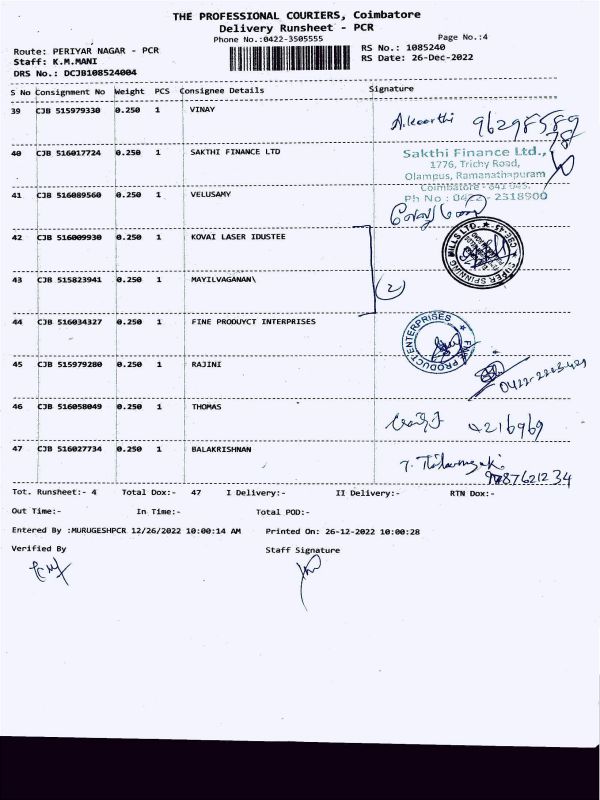 THE PROFESSIONAL COURIERS, Coimbatore
Delivery Runsheet - PCR
Phone No.:0422-3505555
Page No.:4
Route: PERIYAR NAGAR - PCR
RS No.: 1085240
Staff: K.M.MANI
RS Date: 26-Dec-2022
DRS No.: DCJB108524004
S No Consignment No Weight PCS Consignee Details Signature
39 CJB 515979330 0.250 1 VINAY
40 CJB 516017724 0.250 1 SAKTHI FINANCE LTD
Sakthi Finance Ltd.,
1776, Trichy Road,
Olampus, Ramanathapuram
Coimbatore - 641 045.
Ph No : 0422 - 2318900
41 CJB 516089560 0.250 1 VELUSAMY
42 CJB 516009930 0.250 1 KOVAI LASER IDUSTEE
SUPER SPINNING MILLS LTD. ★ CBE-45 ★
43 CJB 515823941 0.250 1 MAYILVAGANAN\
2
44 CJB 516034327 0.250 1 FINE PRODUYCT INTERPRISES
FINE PRODUCT ENTERPRISES
45 CJB 515979280 0.250 1 RAJINI
46 CJB 516058049 0.250 1 THOMAS
4216969
47 CJB 516027734 0.250 1 BALAKRISHNAN
Tot. Runsheet:- 4 Total Dox:- 47 I Delivery:- II Delivery:- RTN Dox:-
Out Time:- In Time:- Total POD:-
Entered By :MURUGESHPCR 12/26/2022 10:00:14 AM Printed On: 26-12-2022 10:00:28
Verified By Staff Signature